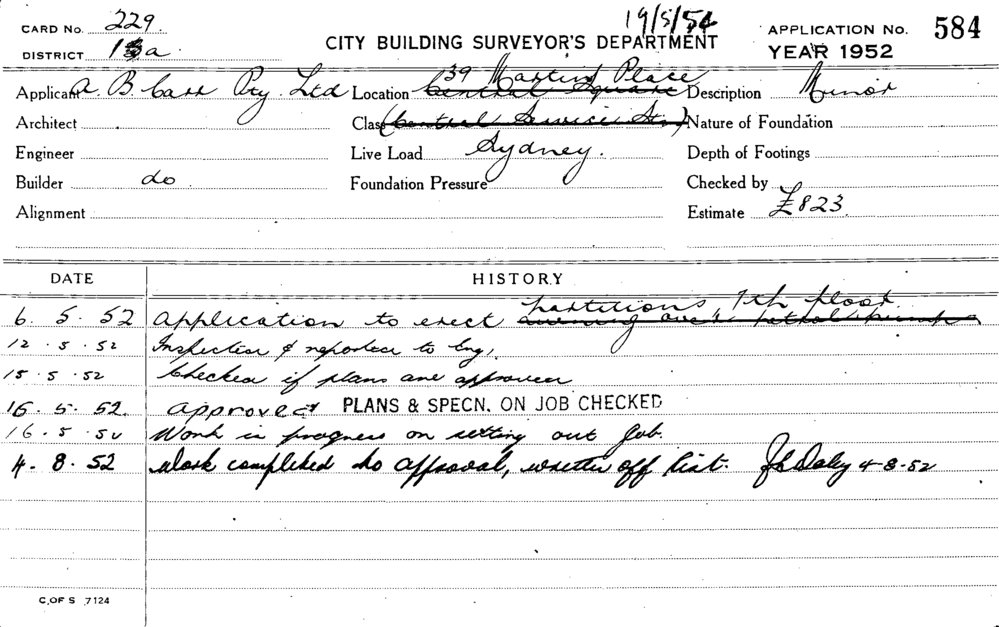 CARD NO. 229 19/5/54 APPLICATION NO. 584
DISTRICT 15a CITY BUILDING SURVEYOR'S DEPARTMENT YEAR 1952
39 Martin Place
Applicant A. B. Carr Pty. Ltd Location Central Square Description Minor
Architect Class (Central Service Stn) Nature of Foundation
Engineer Live Load Sydney. Depth of Footings
Builder do Foundation Pressure Checked by
Alignment Estimate £823.
DATE HISTORY
partitions, 7th floor.
6. 5. 52 Application to erect awning over petrol pumps
12. 5. 52 Inspected & reported to Eng.
15. 5. 52 Checked if plans are approved
16. 5. 52. Approved PLANS & SPECN. ON JOB CHECKED
16. 5. 52 Work in progress on setting out job.
4. 8. 52 Work completed to approval, written off list. Daley 4-8-52
C. OF S 7124